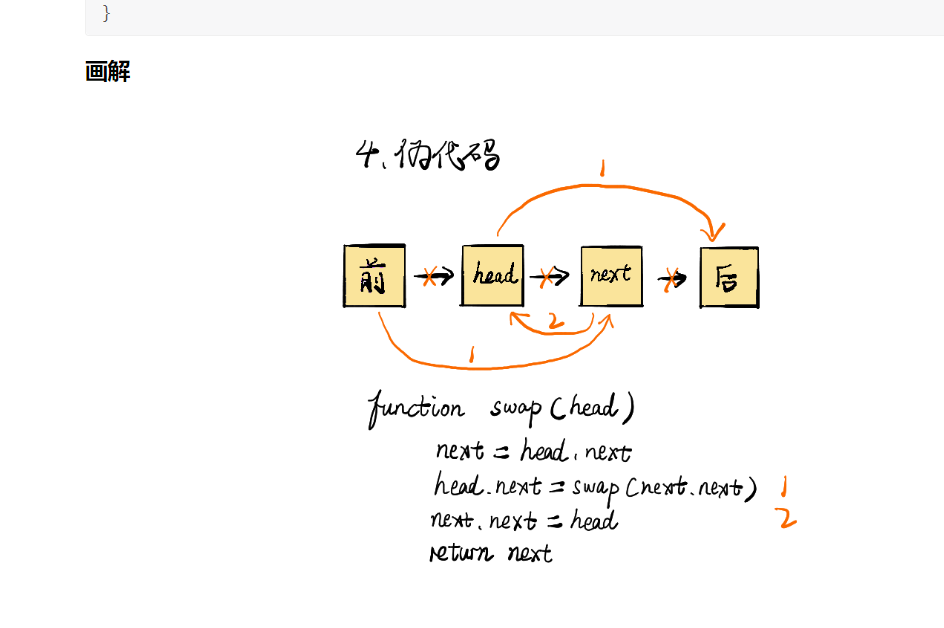 }
画解
4、伪代码
1
前 head next 后
2
1
function swap(head)
next = head.next
head.next = swap(next.next) 1
next.next = head 2
return next